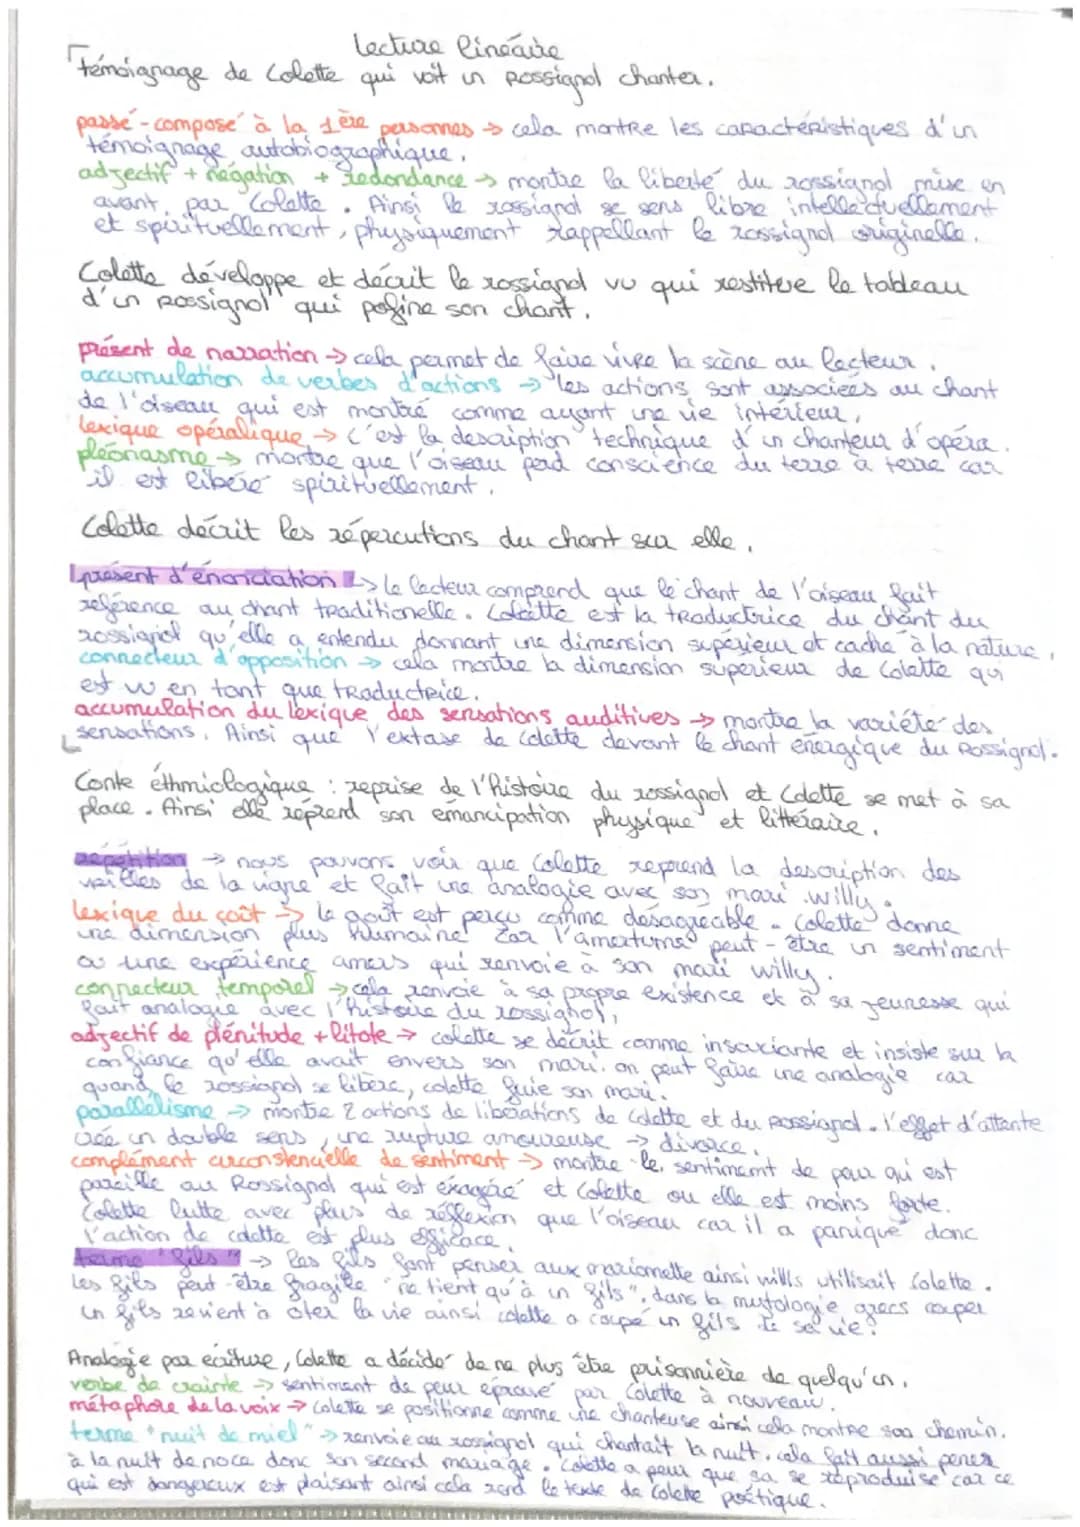 Lecture linéaire
témoignage de Colette qui voit un Rossignol chanter.
passé-composé à la 1ère personnes → cela montre les caractéristiques d'un
témoignage autobiographique.
adjectif + négation + redondance → montre la liberté du rossignol mise en
avant par Colette. Ainsi le rossignol se sens libre intellectuellement
et spirituellement, physiquement rappellant le rossignol originelle.
Colette développe et décrit le rossignol vu qui restitue le tableau
d'un Rossignol qui pofine son chant.
présent de narration → cela permet de faire vivre la scène au lecteur.
accumulation de verbes d'actions → les actions sont associées au chant
de l'oiseau qui est montré comme ayant une vie intérieur,
lexique opéralique → c'est la description technique d'un chanteur d'opéra.
pléonasme → montre que l'oiseau perd conscience du terre à terre car
il est libéré spirituellement.
Colette décrit les répercutions du chant sur elle.
présent d'énonciation → le lecteur comprend que le chant de l'oiseau fait
référence au chant traditionelle. Colette est la traductrice du chant du
rossignol qu'elle a entendu donnant une dimension supérieur et cachée à la nature.
connecteur d'opposition → cela montre la dimension supérieur de Colette qui
est vu en tant que traductrice.
accumulation du lexique des sensations auditives → montre la variété des
sensations. Ainsi que l'extase de Colette devant le chant énergique du Rossignol.
Conte éthmiologique : reprise de l'histoire du rossignol et Colette se met à sa
place. Ainsi elle reprend son émancipation physique et littéraire.
répétition → nous pouvons voir que Colette reprend la description des
vrilles de la vigne et fait une analogie avec son mari willy.
lexique du goût → le goût est perçu comme désagréable. Colette donne
une dimension plus humaine car l'amertume peut-être un sentiment
ou une expérience amers qui renvoie à son mari willy.
connecteur temporel → cela renvoie à sa propre existence et à sa jeunesse qui
fait analogie avec l'histoire du rossignol,
adjectif de plénitude + litote → colette se décrit comme insouciante et insiste sur la
confiance qu'elle avait envers son mari. on peut faire une analogie car
quand le rossignol se libère, colette fuie son mari.
parallélisme → montre 2 actions de libérations de Colette et du Rossignol. l'effet d'attente
crée un double sens, une rupture amoureuse → divorce.
complément circonstencielle de sentiment → montre le sentiment de peur qui est
pareille au Rossignol qui est exagéré et Colette ou elle est moins forte.
Colette lutte avec plus de réflexion que l'oiseau car il a paniqué donc
l'action de colette est plus efficace.
terme "fils" → les fils font penser aux marionette ainsi willis utilisait Colette.
Les fils peut-être fragile "ne tient qu'à un fils", dans la mytologie grecs couper
un fils revient à ôter la vie ainsi colette a coupé un fils de sa vie.
Analogie par écriture, Colette a décidé de ne plus être prisonnière de quelqu'un.
verbe de crainte → sentiment de peur éprouvé par Colette à nouveau.
métaphore de la voix → Colette se positionne comme une chanteuse ainsi cela montre son chemin.
terme "nuit de miel" → renvoie au rossignol qui chantait la nuit. cela fait aussi penser
à la nuit de noce donc son second mariage. Colette a peur que sa se reproduise car ce
qui est dangereux est plaisant ainsi cela rend le texte de Colette poétique.